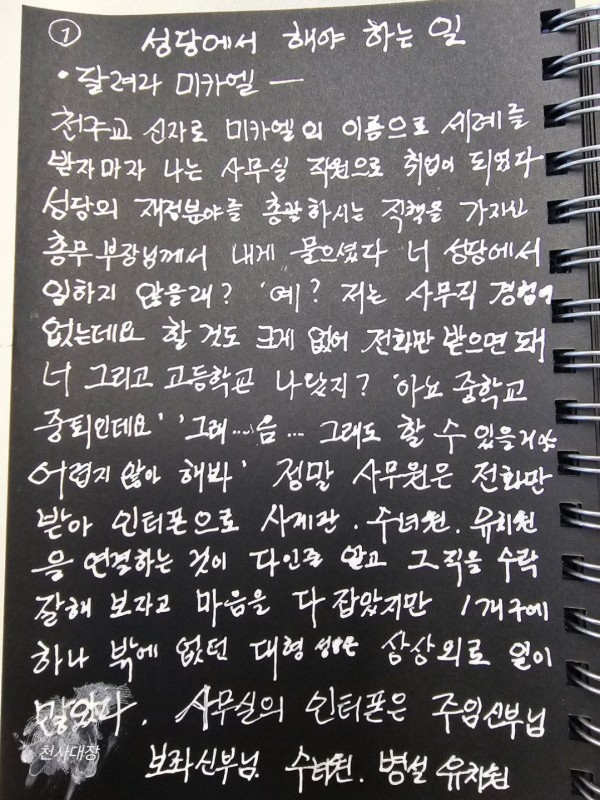 ① 성당에서 해야 하는 일
• 달려라 미카엘 —
천주교 신자로 미카엘의 이름으로 세례를
받자마자 나는 사무실 직원으로 취업이 되었다
성당의 재정분야를 총괄하시는 직책을 가지신
총무부장님께서 내게 물으셨다 너 성당에서
일하지 않을래? '예? 저는 사무직 경험이
없는데요 할 것도 크게 없어 전화만 받으면 돼
너 그리고 고등학교 나왔지? '아뇨 중학교
중퇴인데요' '그래... 음... 그래도 할 수 있을거야
어렵지 않아 해봐' 정말 사무원은 전화만
받아 인터폰으로 사제관. 수녀원. 유치원
을 연결하는 것이 다인줄 알고 그 직을 수락
잘해 보자고 마음을 다 잡았지만 1개구에
하나 밖에 없던 대형 성당은 상상외로 일이
많았다. 사무실의 인터폰은 주임신부님
천사대장
보좌신부님. 수녀원. 병설 유치원